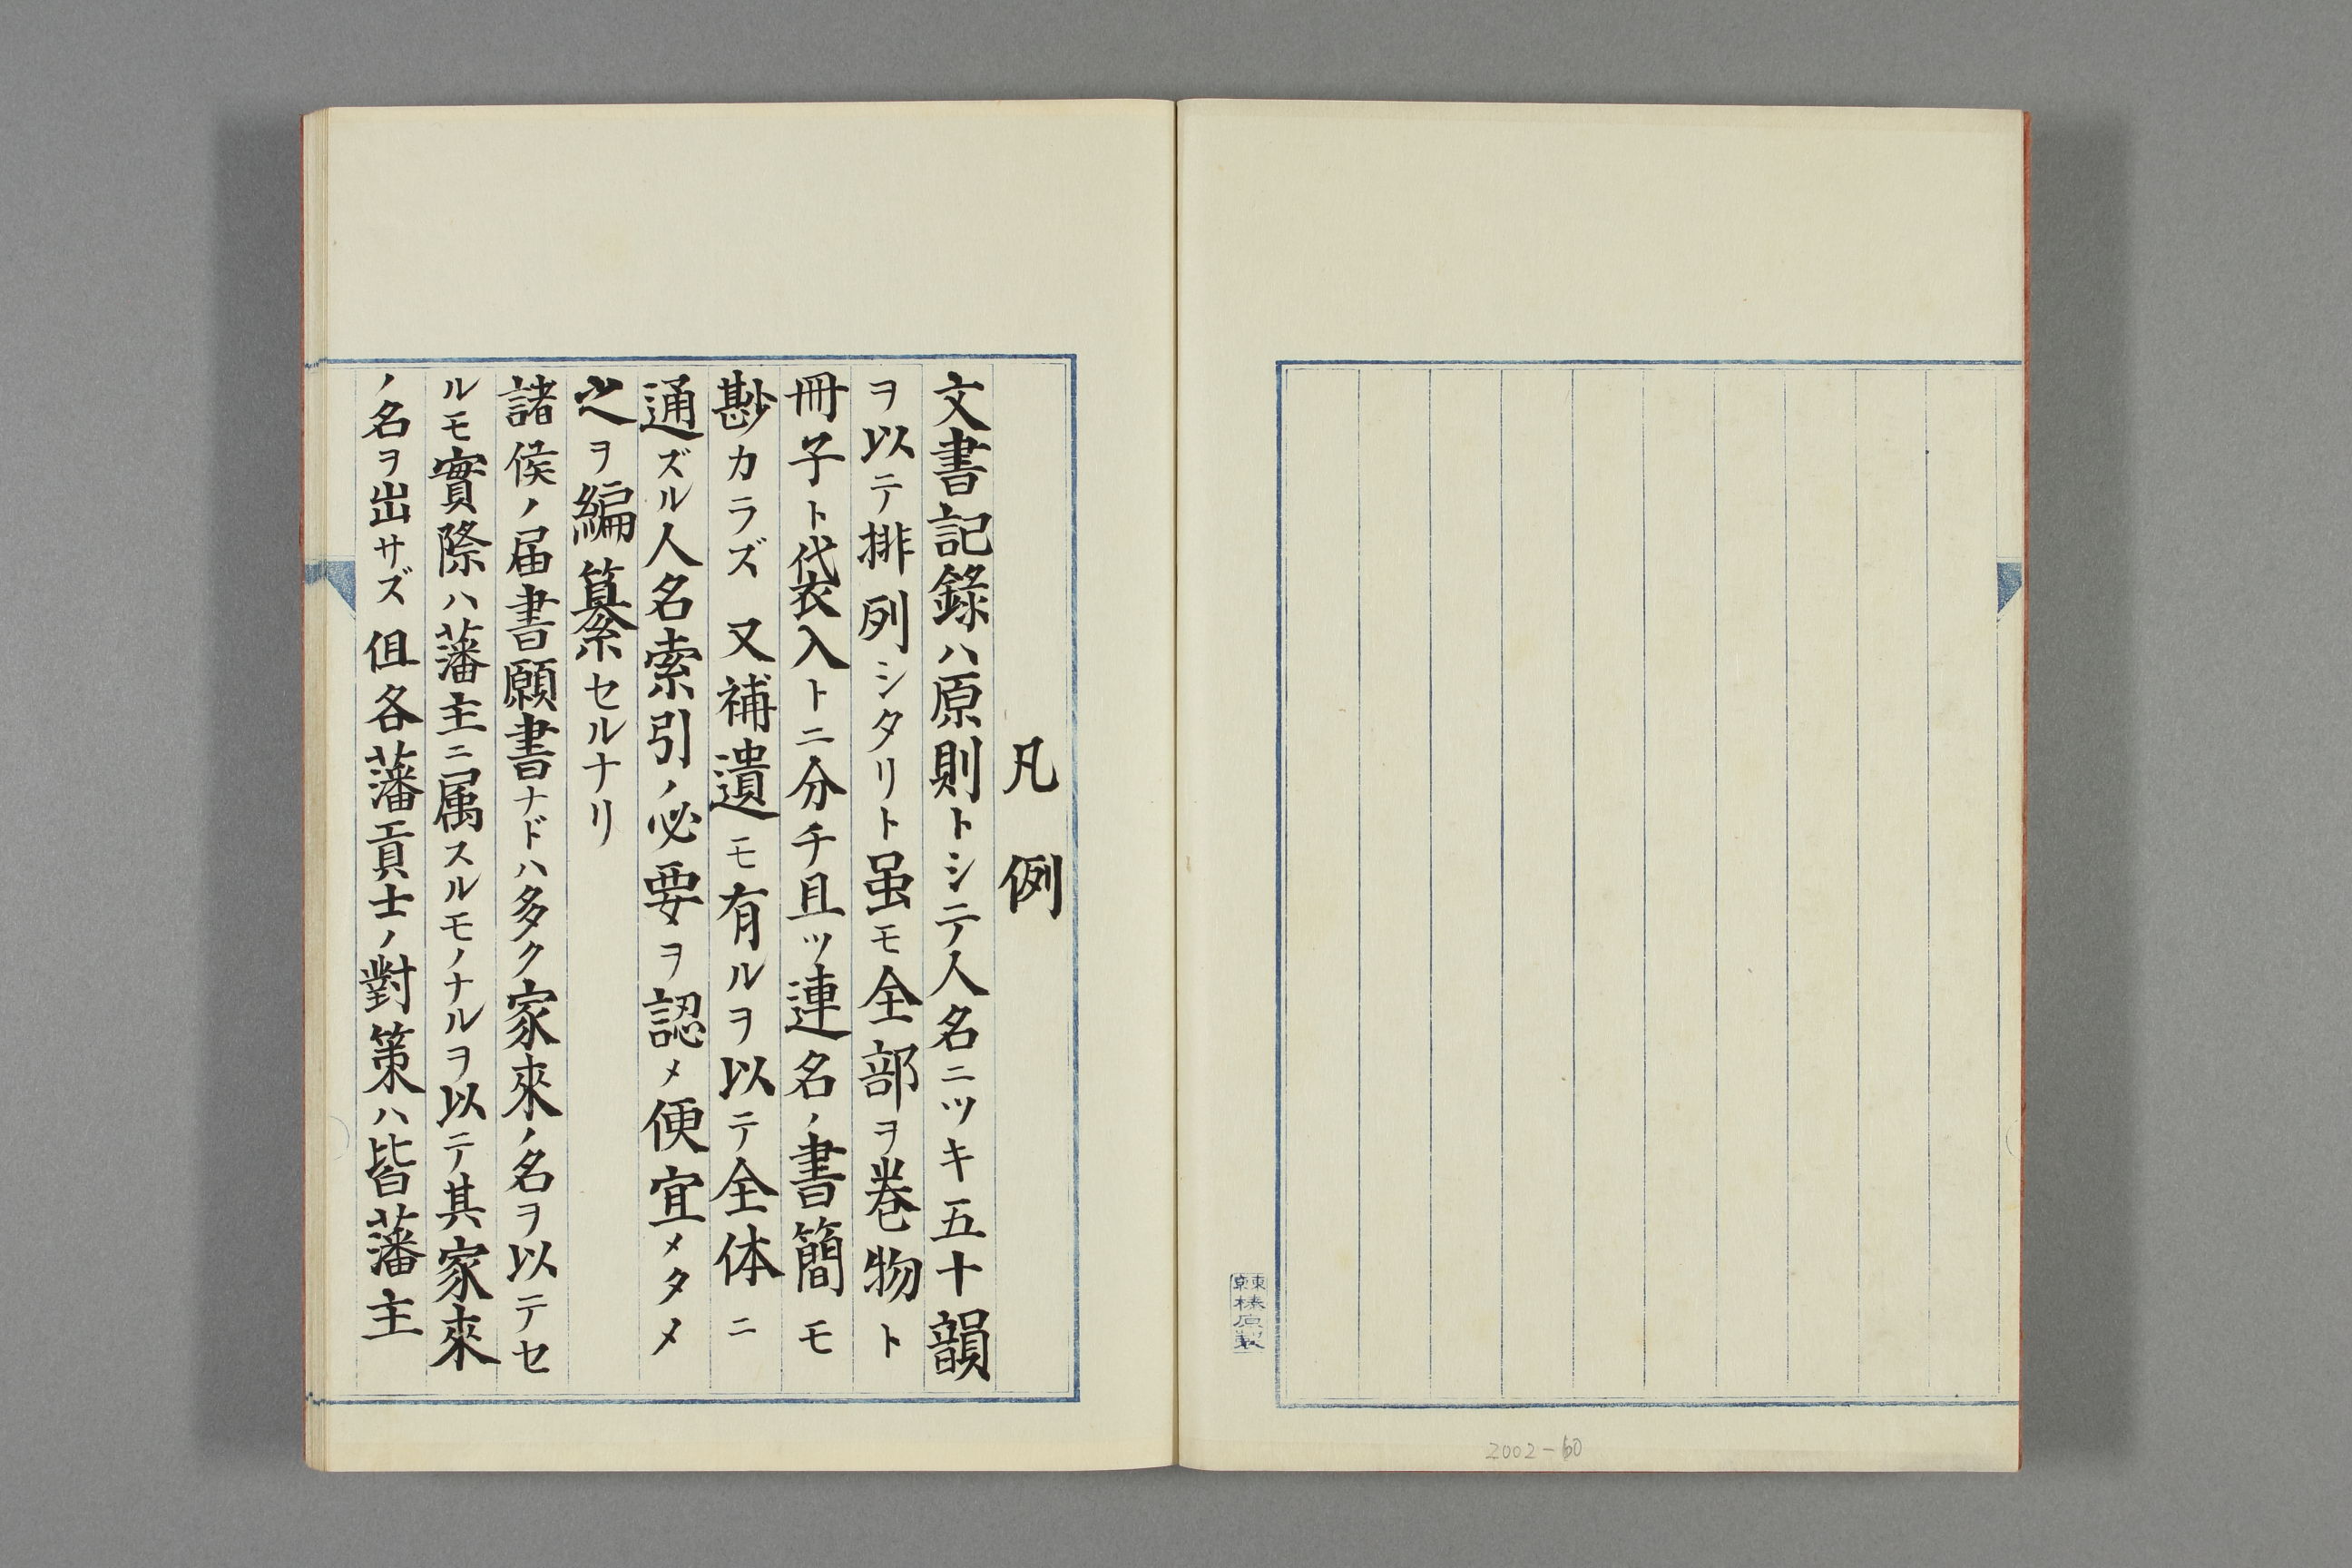 東京榛原製
2002-60
凡例
文書記錄ハ原則トシテ人名ニツキ五十韻
ヲ以テ排列シタリト虽モ全部ヲ巻物ト
冊子ト袋入トニ分チ且ツ連名ノ書簡モ
尠カラズ又補遺モ有ルヲ以テ全体ニ
通ズル人名索引ノ必要ヲ認メ便宜メタメ
之ヲ編纂セルナリ
諸侯ノ届書願書ナドハ多ク家來ノ名ヲ以テセ
ルモ實際ハ藩主ニ属スルモノナルヲ以テ其家來
ノ名ヲ出サズ但各藩貢士ノ對策ハ皆藩主